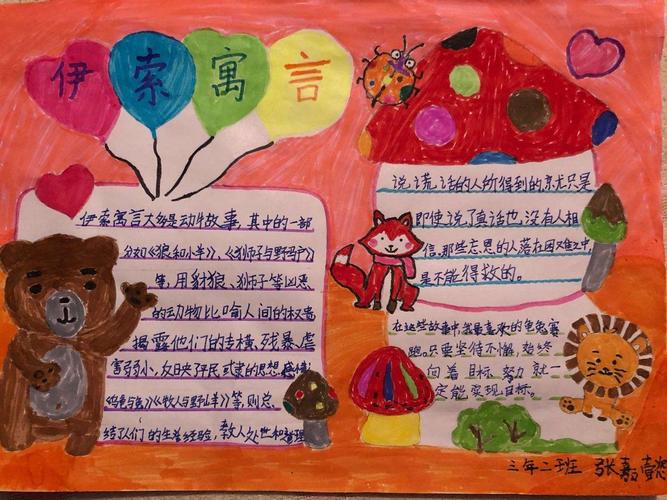 伊索寓言
伊索寓言大多是动物故事,其中的一部
分如《狼和小羊》、《狮子与野驴》
等,用豺狼、狮子等凶恶
的动物比喻人间的权贵
揭露他们的专横,残暴虐
害弱小,反映平民或的思想感情
《与》《牧人与野山羊》等,则总
结了人们的生活经验,教人处世和
说谎话的人所得到的就只是
即使说了真话也没有人相
信,那些忘恩的人落在困难之中
是不能得救的。
在这些故事中我最喜欢的龟兔赛
跑。只要坚持不懈,始终
向着目标,努力就一
定能实现目标。
三年二班 张嘉懿